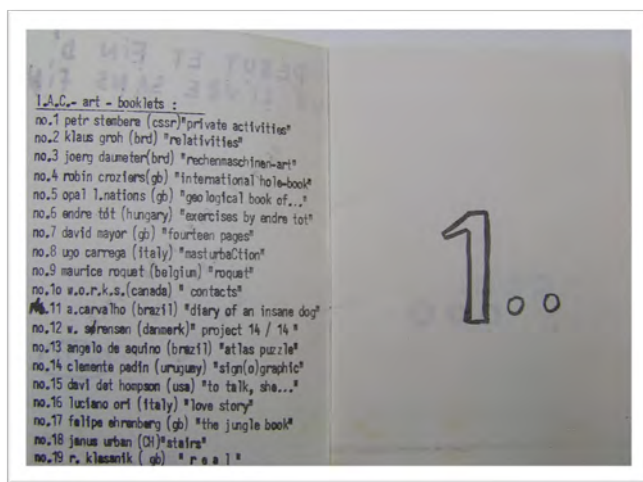 I.A.C.- art - booklets :
no.1 petr stembera (cssr)"private activities"
no.2 klaus groh (brd) "relativities"
no.3 joerg daumeter(brd) "rechenmaschinen-art"
no.4 robin croziers(gb) "international hole-book"
no.5 opal l.nations (gb) "geological book of..."
no.6 endre tót (hungary) "exercises by endre tot"
no.7 david mayor (gb) "fourteen pages"
no.8 ugo carrega (italy) "masturbaCtion"
no.9 maurice roquet (belgium) "roquet"
no.1o w.o.r.k.s.(canada) " contacts"
no.11 a.carvalho (brazil) "diary of an insane dog"
no.12 w. sørensen (danmerk)" project 14 / 14 "
no.13 angelo de aquino (brazil) "atlas puzzle"
no.14 clemente padin (uruguay) "sign(o)graphic"
no.15 davi det hompson (usa) "to talk, she..."
no.16 luciano ori (italy) "love story"
no.17 felipe ehrenberg (gb) "the jungle book"
no.18 janus urban (CH)"stairs"
no.19 r. klasanik ( gb) " r e a l "
1..